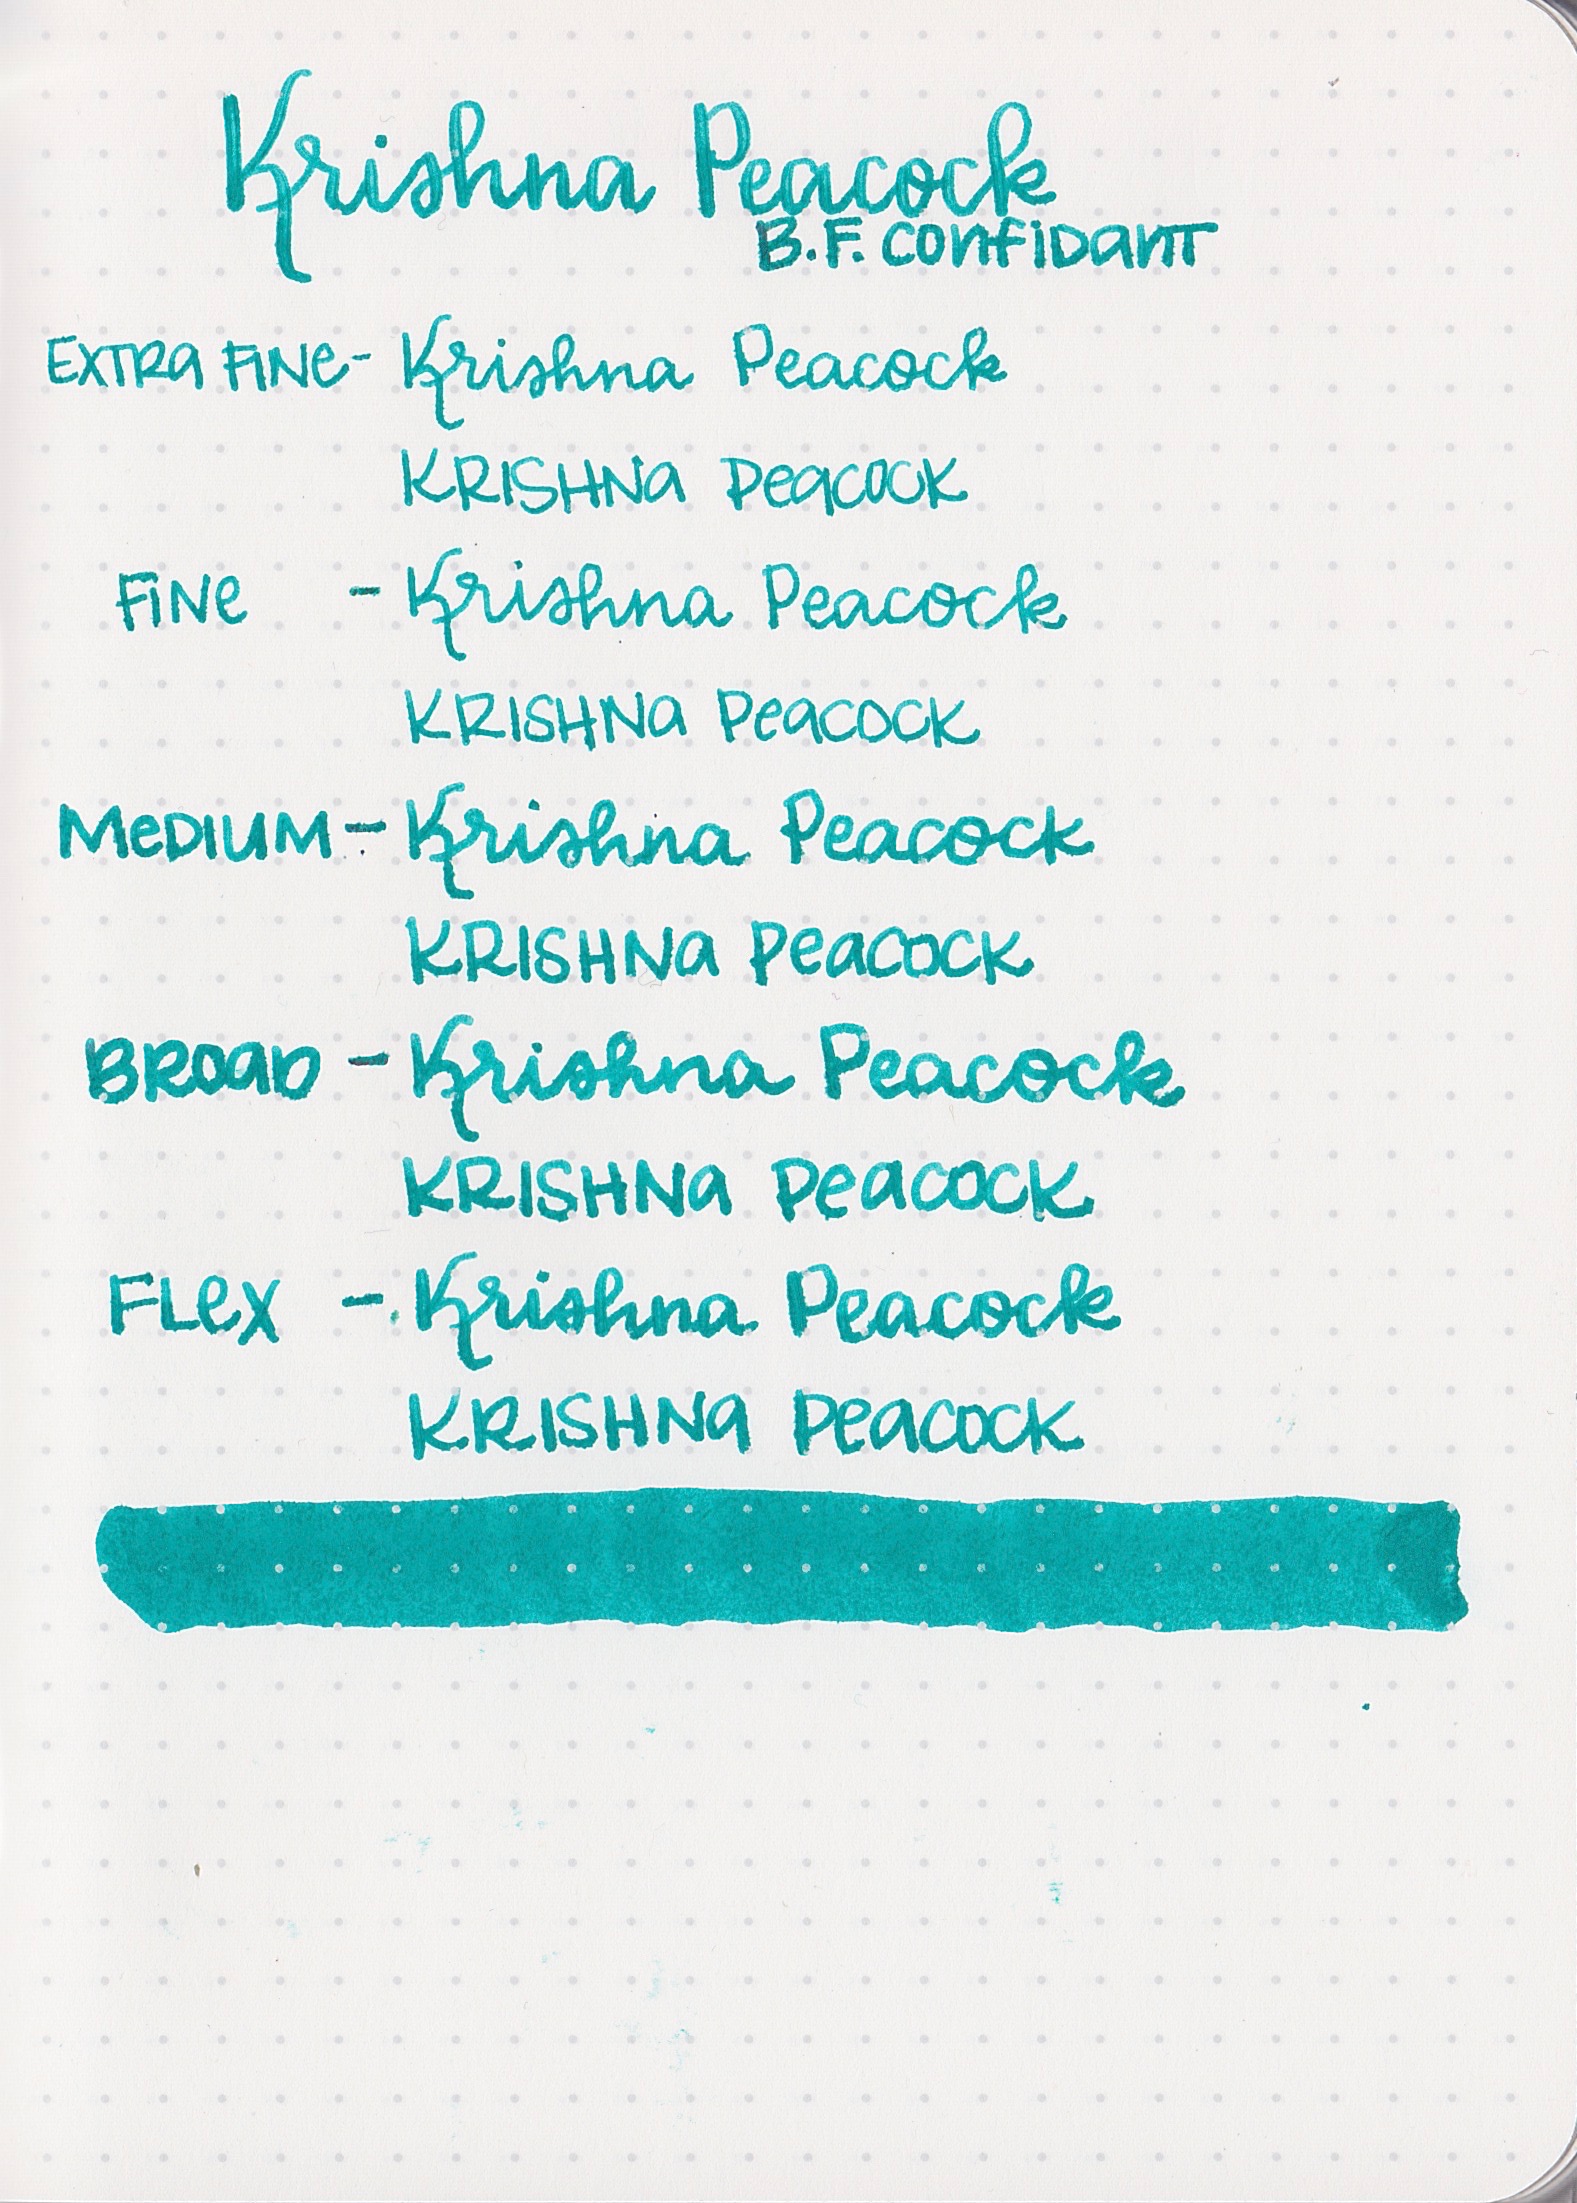 Krishna Peacock
B.F. Confidant
Extra Fine - Krishna Peacock
KRISHNa Peacock
Fine - Krishna Peacock
KRISHNa Peacock
Medium - Krishna Peacock
KRISHNa Peacock
Broad - Krishna Peacock
KRISHNa Peacock
Flex - Krishna Peacock
KRISHNa Peacock